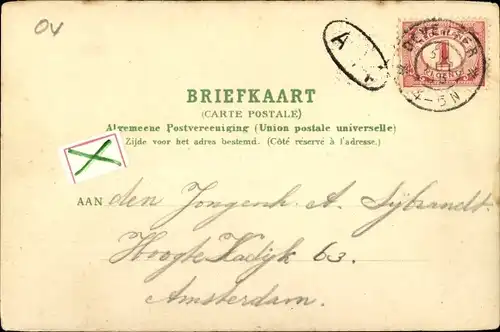 OV
DEVENTER
4-5 N
1
BRIEFKAART
(CARTE POSTALE)
Algemeene Postvereeniging (Union postale universelle)
Zijde voor het adres bestemd. (Côté réservé à l'adresse.)
AAN den Jongenh. A. Sijbrandt.
Hoogte Kadijk 63.
Amsterdam.